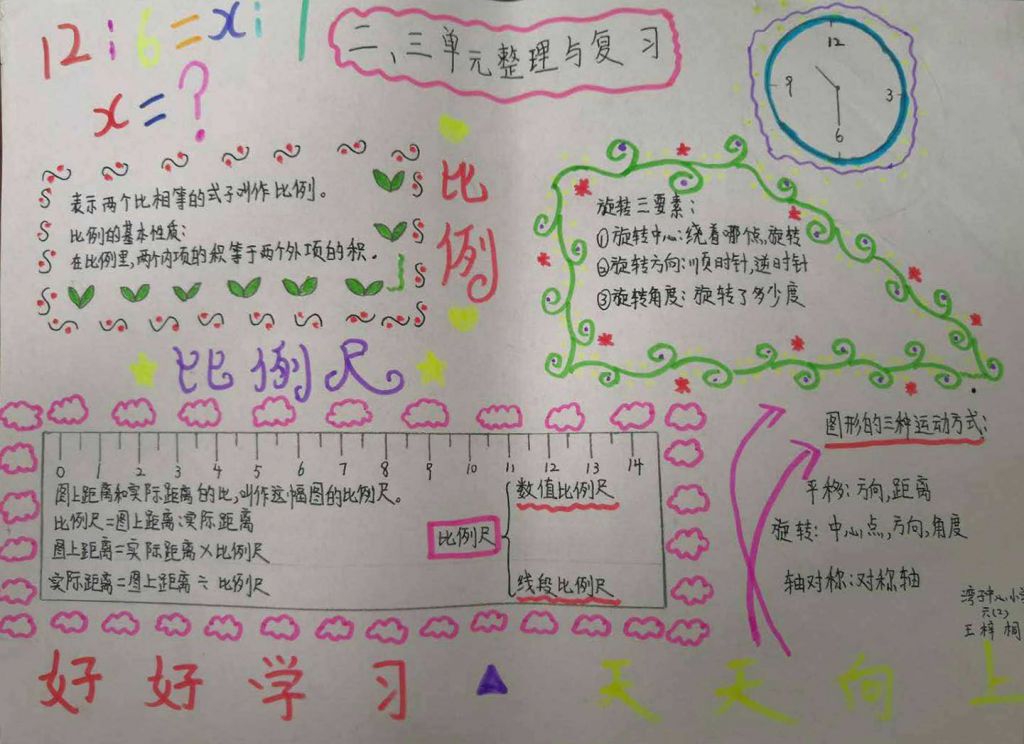 12:6=x:1
x=?
二、三单元整理与复习
12
9
3
6
表示两个比相等的式子叫作比例。
比例的基本性质:
在比例里,两个内项的积等于两个外项的积。
比例
旋转三要素:
①旋转中心:绕着哪个点旋转
②旋转方向:顺时针,逆时针
③旋转角度:旋转了多少度
比例尺
0 1 2 3 4 5 6 7 8 9 10 11 12 13 14
图上距离和实际距离的比,叫作这幅图的比例尺。
比例尺=图上距离:实际距离
图上距离=实际距离×比例尺
实际距离=图上距离÷比例尺
比例尺
数值比例尺
线段比例尺
图形的三种运动方式:
平移:方向,距离
旋转:中心点,方向,角度
轴对称:对称轴
六(2)
王梓桐
好好学习 天天向上